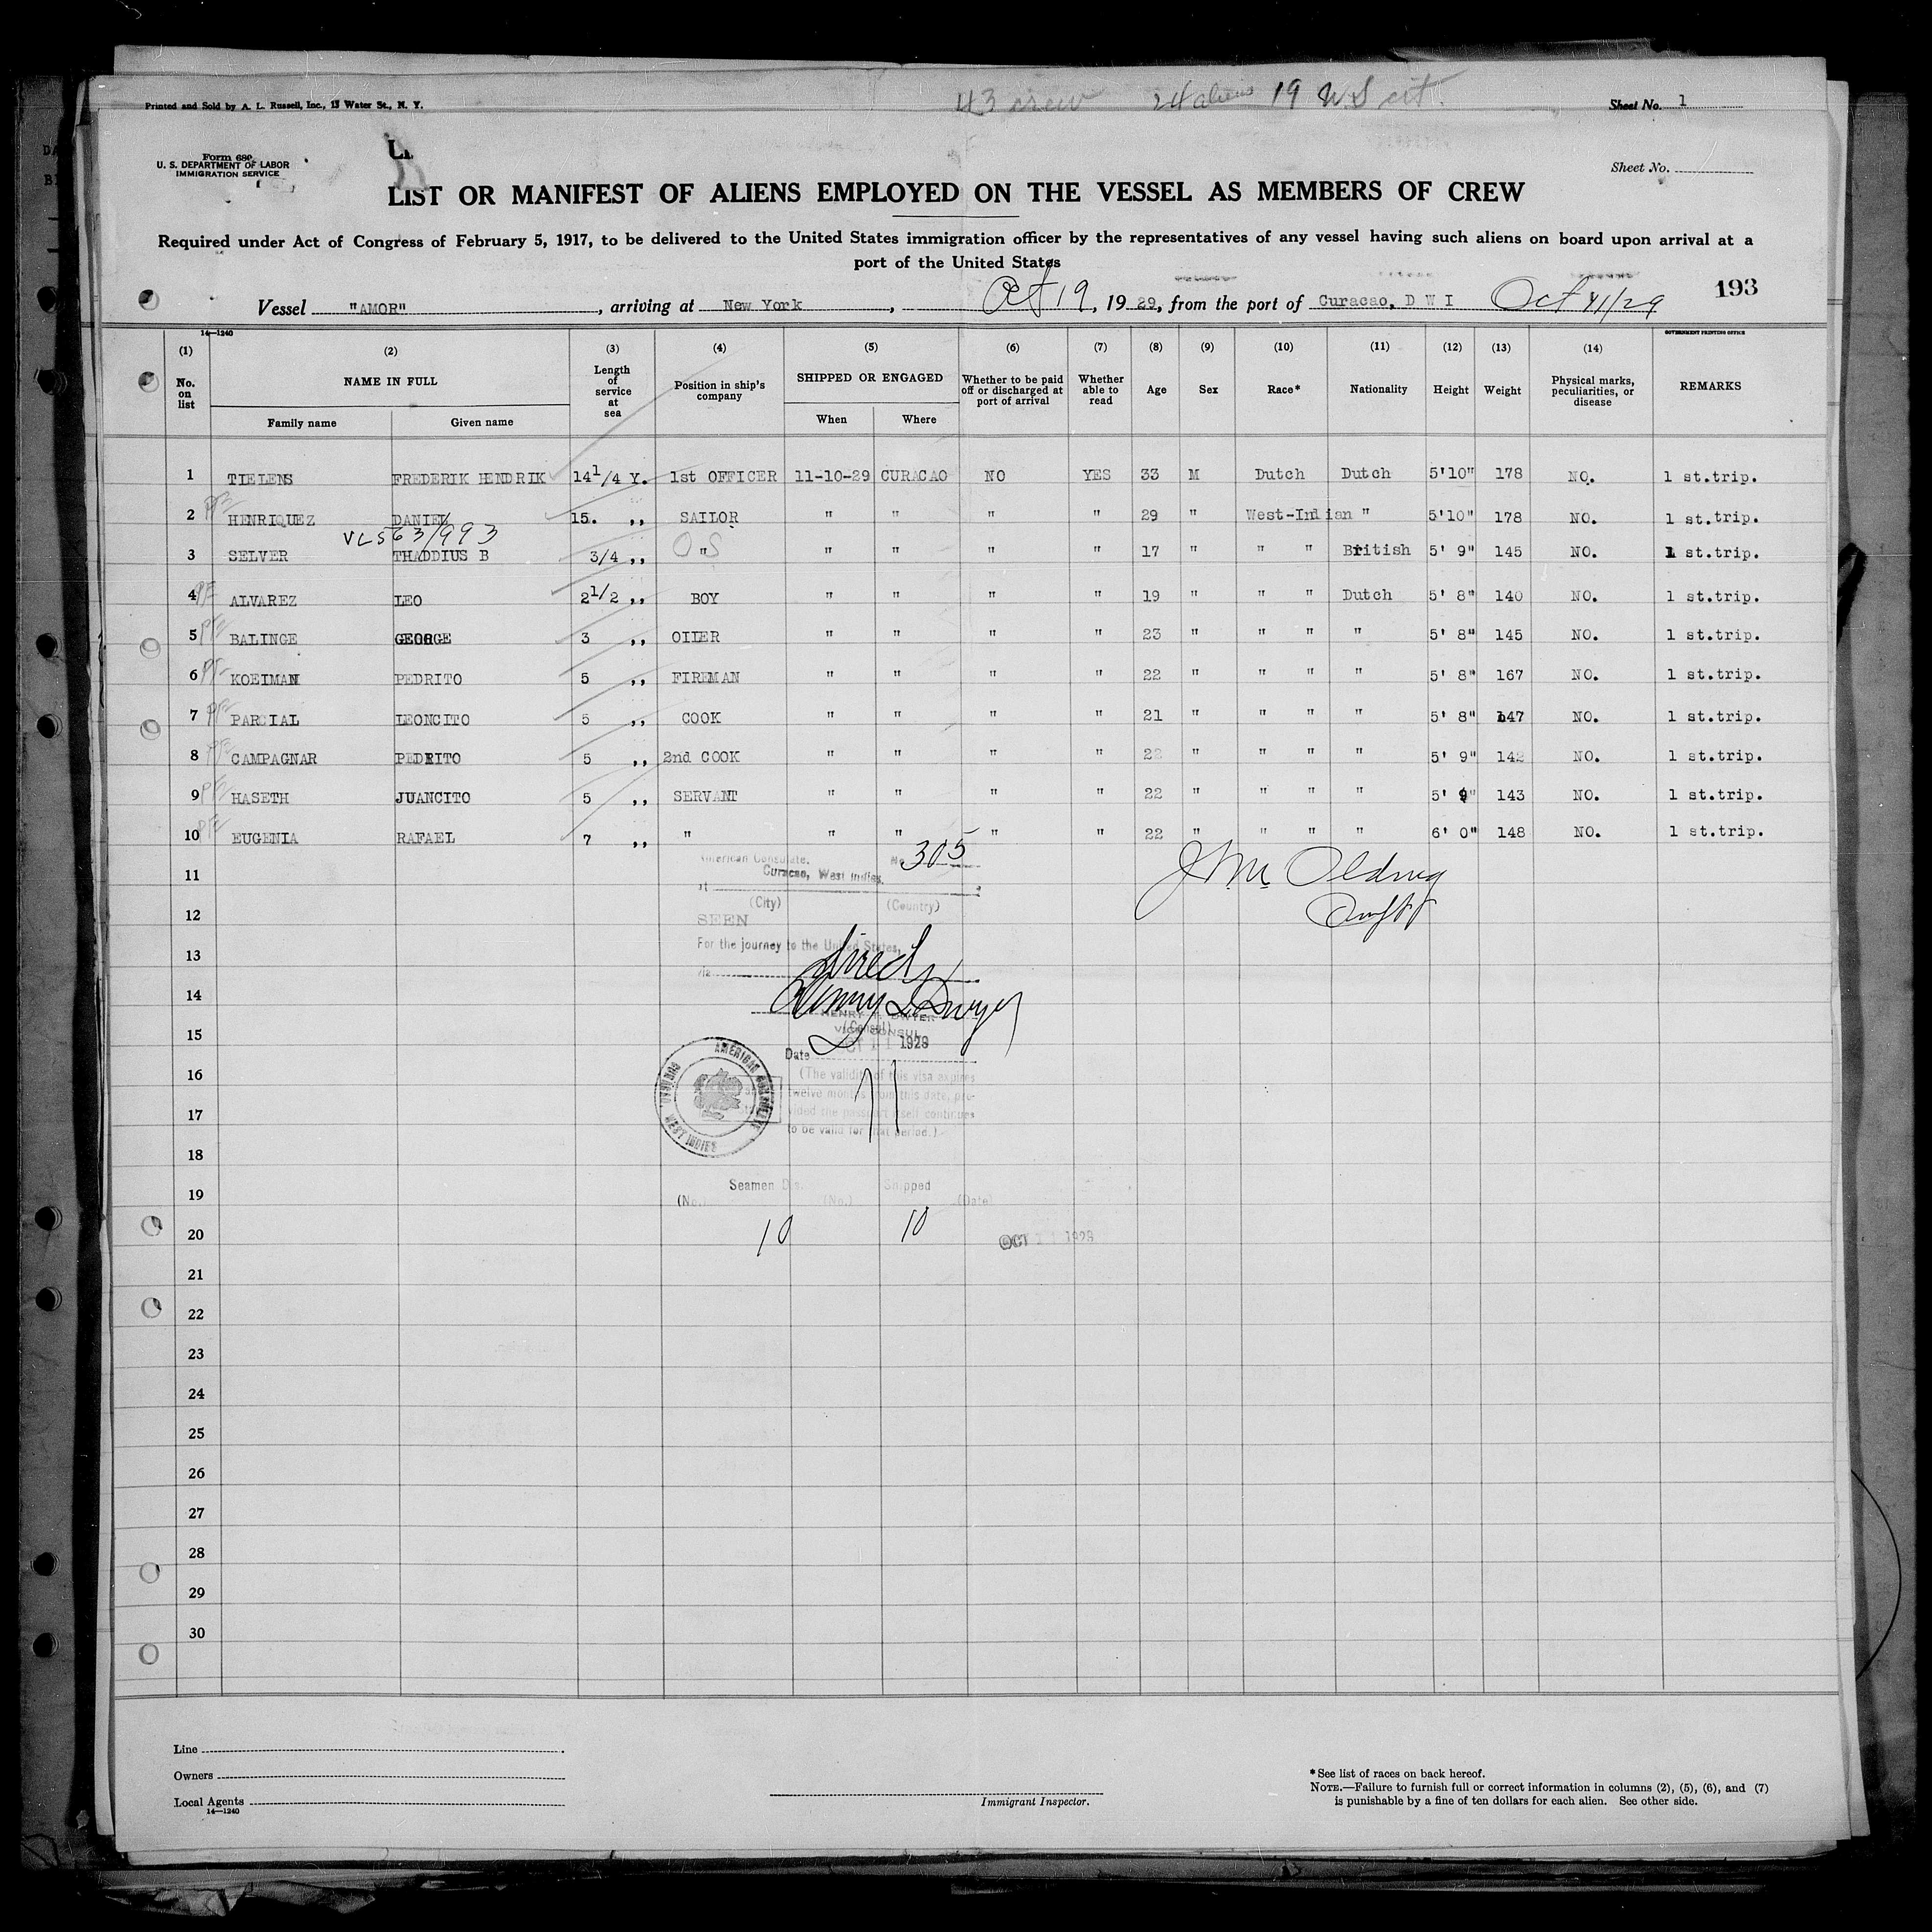 43 crew 24 aliens 19 U S cit.
Printed and Sold by A. L. Russell, Inc., 13 Water St., N. Y.
Sheet No. 1
Form 680
U. S. DEPARTMENT OF LABOR
IMMIGRATION SERVICE
Sheet No.
LIST OR MANIFEST OF ALIENS EMPLOYED ON THE VESSEL AS MEMBERS OF CREW
Required under Act of Congress of February 5, 1917, to be delivered to the United States immigration officer by the representatives of any vessel having such aliens on board upon arrival at a
port of the United States
193
Vessel "AMOR", arriving at New York, Oct 19, 1929, from the port of Curacao, D W I Oct 11/29
14—1240
GOVERNMENT PRINTING OFFICE
(1) (2) (3) (4) (5) (6) (7) (8) (9) (10) (11) (12) (13) (14)
No. on list NAME IN FULL Length of service at sea Position in ship's company SHIPPED OR ENGAGED Whether to be paid off or discharged at port of arrival Whether able to read Age Sex Race* Nationality Height Weight Physical marks, peculiarities, or disease REMARKS
Family name Given name When Where
1 TIELENS FREDERIK HENDRIK 14 1/4 Y. 1st OFFICER 11-10-29 CURACAO NO YES 33 M Dutch Dutch 5'10" 178 NO. 1 st.trip.
2 HENRIQUEZ DANIEL 15. ,, SAILOR " " " " 29 " West-Indian " 5'10" 178 NO. 1 st.trip.
VLS63/993
3 SELVER THADDIUS B 3/4 ,, " OS " " " " 17 " " " British 5' 9" 145 NO. 1 st.trip.
4 ALVAREZ LEO 2 1/2 ,, BOY " " " " 19 " " " Dutch 5' 8" 140 NO. 1 st.trip.
5 BALINGE GEORGE 3 ,, OILER " " " " 23 " " " " 5' 8" 145 NO. 1 st.trip.
6 KOEIMAN PEDRITO 5 ,, FIREMAN " " " " 22 " " " " 5' 8" 167 NO. 1 st.trip.
7 PARCIAL LEONCITO 5 ,, COOK " " " " 21 " " " " 5' 8" 147 NO. 1 st.trip.
8 CAMPAGNAR PEDRITO 5 ,, 2nd COOK " " " " 22 " " " " 5' 9" 142 NO. 1 st.trip.
9 HASETH JUANCITO 5 ,, SERVANT " " " " 22 " " " " 5' 9" 143 NO. 1 st.trip.
10 EUGENIA RAFAEL 7 ,, " " " " " 22 " " " " 6' 0" 148 NO. 1 st.trip.
American Consulate. No. 305
11
Curacao, West Indies.
at
(City) (Country)
12
SEEN
For the journey to the United States,
13
via direct
14
Henry L Dwyer
HENRY L. DWYER
(Consul)
VICE CONSUL
15
Date OCT 11 1929
16
(The validity of this visa expires
twelve months from this date, pro-
17
vided the passport itself continues
to be valid for that period.)
AMERICAN CONSULATE
CURACAO WEST INDIES
18
Seamen Shipped
19
(No.) (No.) (Date)
20
10 10 OCT 11 1929
21
22
23
24
25
26
27
28
29
30
Line
Owners
Local Agents
14—1240
Immigrant Inspector.
*See list of races on back hereof.
NOTE.—Failure to furnish full or correct information in columns (2), (5), (6), and (7)
is punishable by a fine of ten dollars for each alien. See other side.